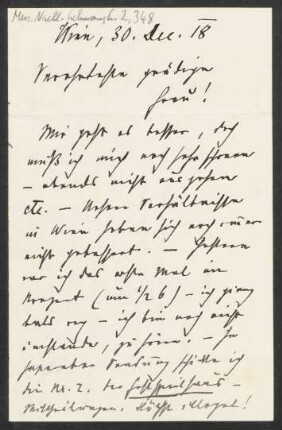 Wien, 30. Dec. 18
Verehrteste gnädige
Frau!
Mir geht es besser, doch
muß ich mich noch sehr schonen
– abends nicht ausgehen
etc. – Unsere Verhältnisse
in Wien haben sich noch immer
nicht gebessert. – Gestern
war ich das erste Mal im
Konzert (um ½ 6) – ich ging
bald weg – ich bin noch nicht
imstande, zu hören. – In
separater Sendung schicke ich
die Nr. 2. der Festspielhaus-
Mittheilungen.